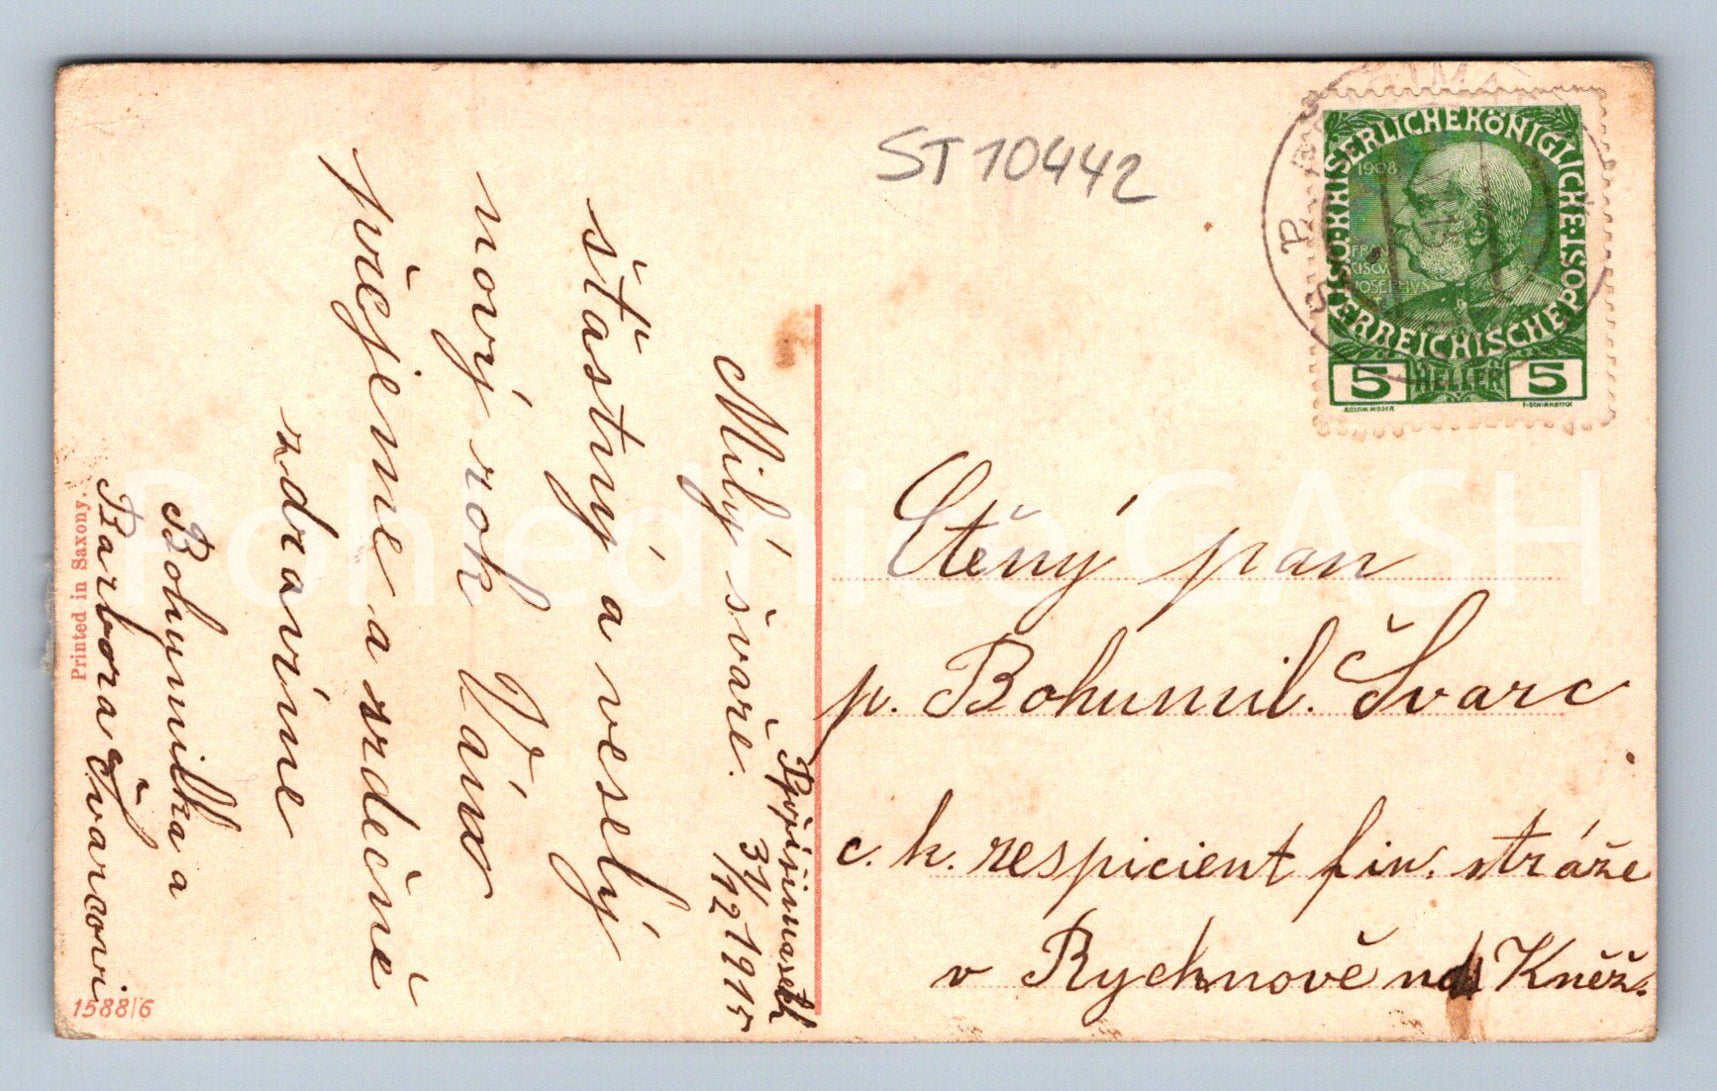 ST 10442
KAISERLICHE KÖNIGLICHE ÖSTERREICHISCHE POST
1908
5 HELLER 5
Ctěný pan
p. Bohumil. Švarc
c. k. respicient fin. stráže
v Rychnově nd Kněž.
31/12 1915
Milý švaře.
šťastný a veselý
nový rok Vám
přejeme a srdečně
zdravíme
Bohumilka a
Barbora Švarcovi
Printed in Saxony.
1588/6
Pohlednice GASH